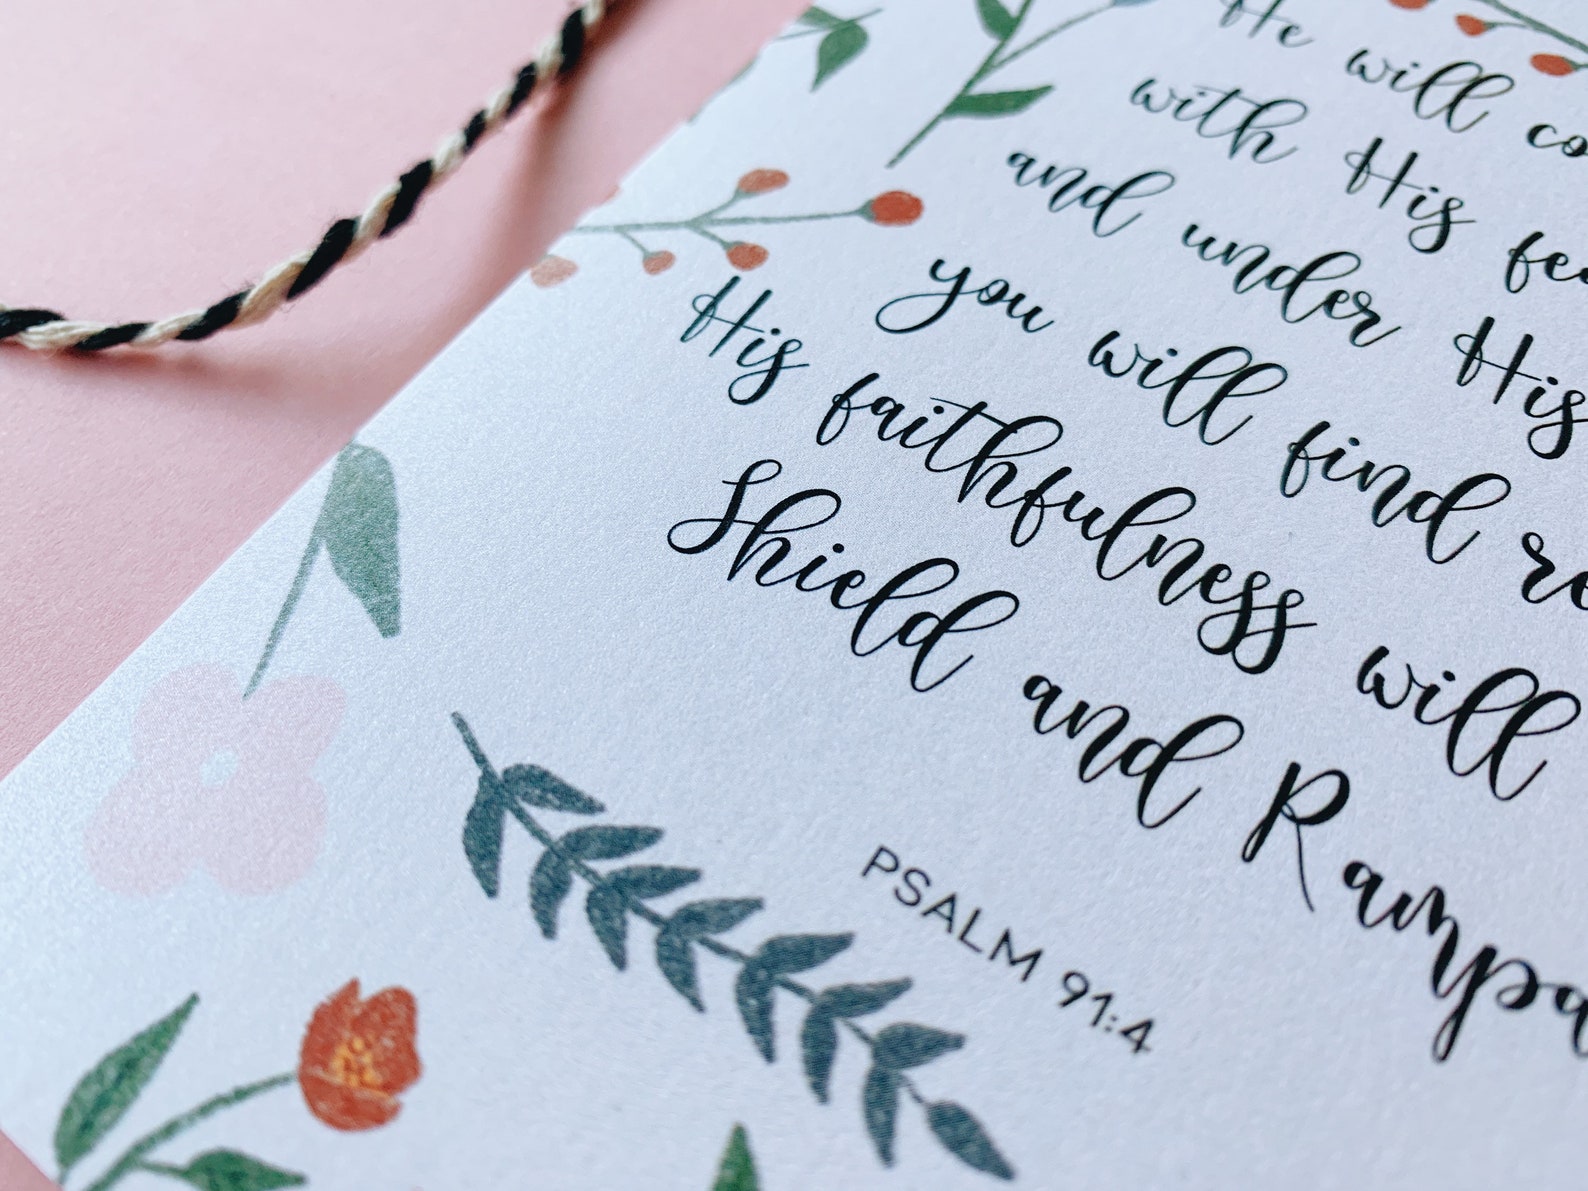 He will co
with His fea
and under His
you will find re
His faithfulness will
Shield and Rampa
PSALM 91:4